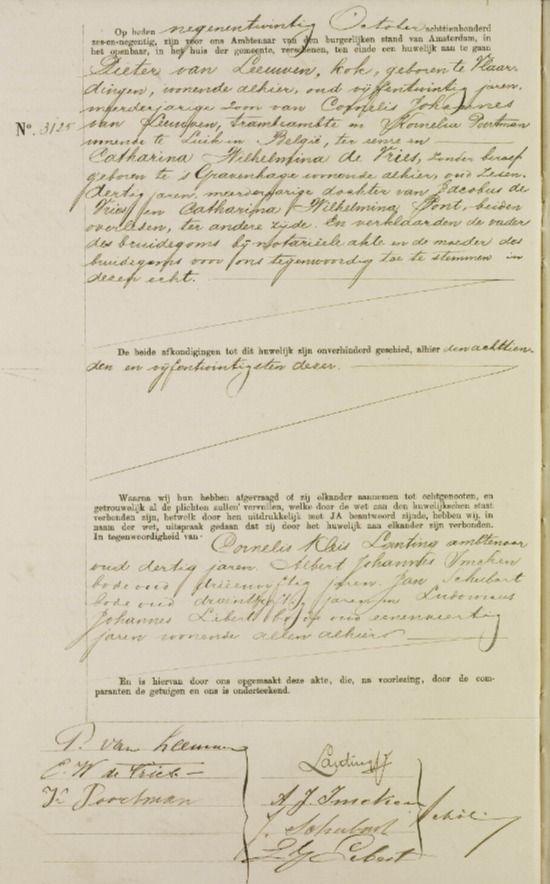 Op heden negenentwintig October achttienhonderd
zes-en-negentig, zijn voor ons Ambtenaar van den burgerlijken stand van Amsterdam, in
het openbaar, in het huis der gemeente, verschenen, ten einde een huwelijk aan te gaan
Pieter van Leeuwen, kok, geboren te Vlaar-
dingen, wonende alhier, oud vijfentwintig jaren,
meerderjarige zoon van Cornelis Johannes
Nº. 3125
van Leeuwen, en Kornelia Poortman
wonende te Luik in België, ter eenre en
Catharina Wilhelmina de Vries, zonder beroep
geboren te 's Gravenhage wonende alhier, oud zesen-
dertig jaren, meerderjarige dochter van Jacobus de
Vries en Catharina Wilhelmina Pont, beiden
overleden, ter andere zijde. En verklaarden de vader
des bruidegoms bij notariëele akte en de moeder des
bruidegoms voor ons tegenwoordig toe te stemmen in
dezen echt.
De beide afkondigingen tot dit huwelijk zijn onverhinderd geschied, alhier den achttien-
den en vijfentwintigsten dezer.
Waarna wij hun hebben afgevraagd of zij elkander aannemen tot echtgenooten, en
getrouwelijk al de plichten zullen vervullen, welke door de wet aan den huwelijkschen staat
verbonden zijn, hetwelk door hen uitdrukkelijk met JA beantwoord zijnde, hebben wij, in
naam der wet, uitspraak gedaan dat zij door het huwelijk aan elkander zijn verbonden.
In tegenwoordigheid van Cornelis Klais Lanting ambtenaar
oud dertig jaren. Albert Johannes Imcken
bode oud jaren. Jan Schubart
bode oud jaren en Ludovicus
Johannes Liebert bode oud eenenveertig
jaren wonende allen alhier
En is hiervan door ons opgemaakt deze akte, die, na voorlezing, door de com-
paranten de getuigen en ons is onderteekend.
P. van Leeuwen
C. W de Vries
K Poortman
Lanting
A. J. Imcken
J. Schubart
L J Liebert